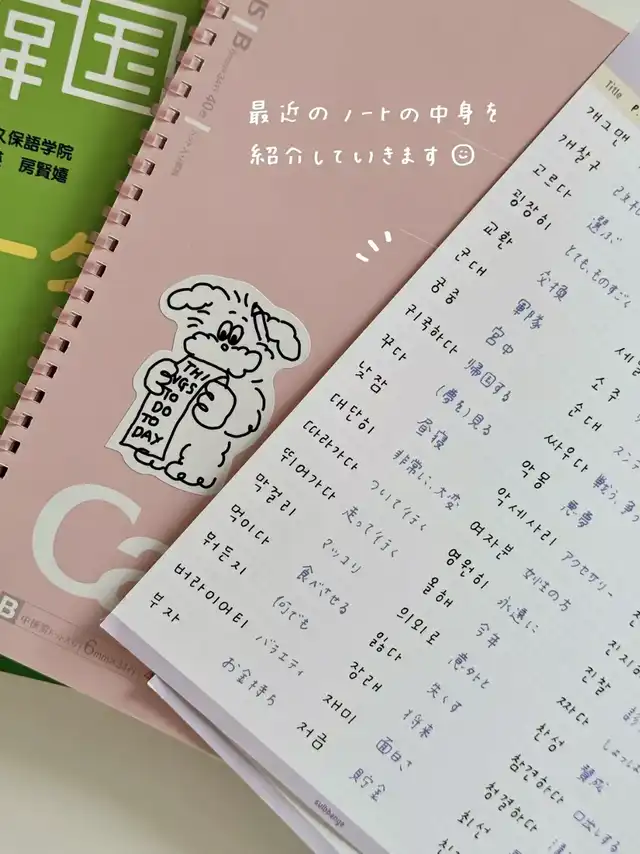 韓国
久保語学院
房賢嬉
B
6mm×34行 40枚
最近のノートの中身を
紹介していきます
THI
NGS
TO
DO
TO
DAY
Ca
B
6mm×34行
Title
P.
개그맨
개찰구
고르다 選ぶ
굉장히 とても、ものすごく
교환 交換
군대 軍隊
궁중 宮中
귀국하다 帰国する
꾸다 (夢を)見る
낮잠 昼寝
대단히 非常に、大変
따라가다 ついて行く
뛰어가다 走って行く
막걸리 マッコリ
먹이다 食べさせる
뭐든지 何でも
버라이어티 バラエティ
부자 お金持ち
소주
순대
싸우다
악몽 悪夢
악세사리 アクセサリー
여자분 女性の方
영원히 永遠に
올해 今年
의외로 意外と
잃다 失くす
장래 将来
재미 面白さ
저금 貯金
진찰
짜다
찬성 賛成
참견하다 口出しする
청결하다
최선